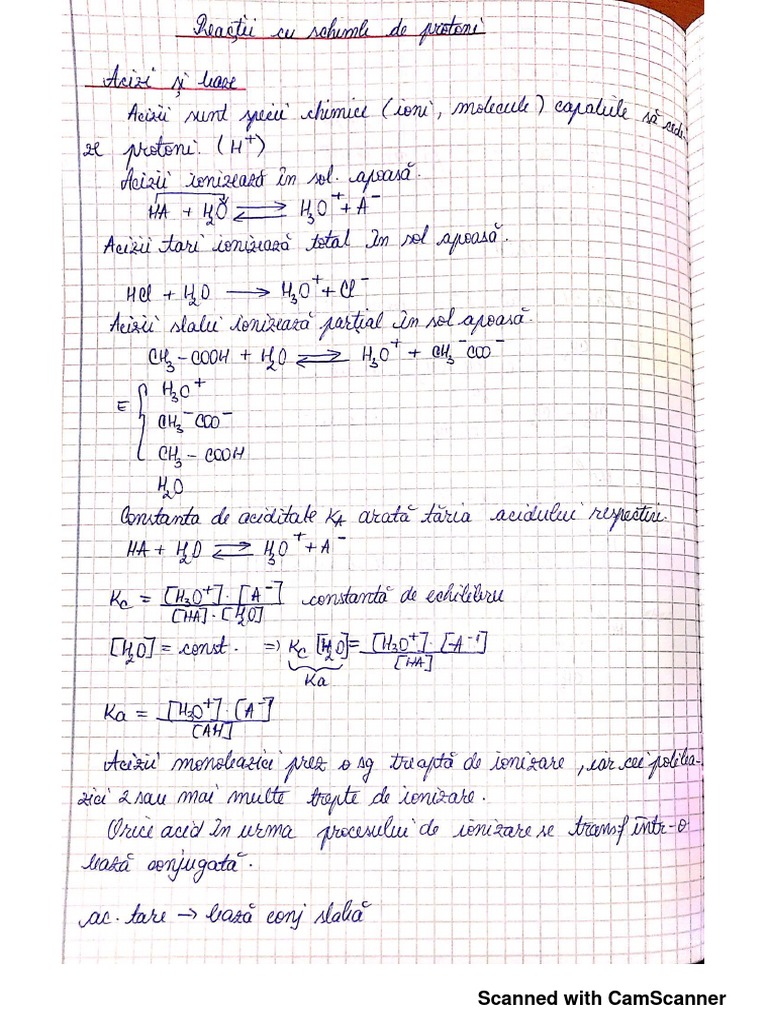 Reacții cu schimb de protoni
Acizi și baze
Acizii sunt specii chimice (ioni, molecule) capabile să cede-
ze protoni. (H⁺)
Acizii ionizează în sol. apoasă.
HA + H₂O ⇌ H₃O⁺ + A⁻
Acizii tari ionizează total în sol apoasă.
HCl + H₂O → H₃O⁺ + Cl⁻
Acizii slabi ionizează parțial în sol apoasă.
CH₃ – COOH + H₂O ⇌ H₃O⁺ + CH₃⁻COO⁻
E { H₃O⁺
CH₃⁻COO⁻
CH₃ – COOH
H₂O
Constanta de aciditate KA arată tăria acidului respectiv.
HA + H₂O ⇌ H₃O⁺ + A⁻
Kc = [H₃O⁺]·[A⁻] / [HA]·[H₂O] constantă de echilibru
[H₂O] = const. => Kc [H₂O] = [H₃O⁺]·[A⁻¹] / [HA]
Ka
Ka = [H₃O⁺]·[A⁻] / [AH]
Acizii monobazici prez o sg treaptă de ionizare, iar cei poliba-
zici 2 sau mai multe trepte de ionizare.
Orice acid în urma procesului de ionizare se transf într-o
bază conjugată.
ac. tare → bază conj slabă
Scanned with CamScanner